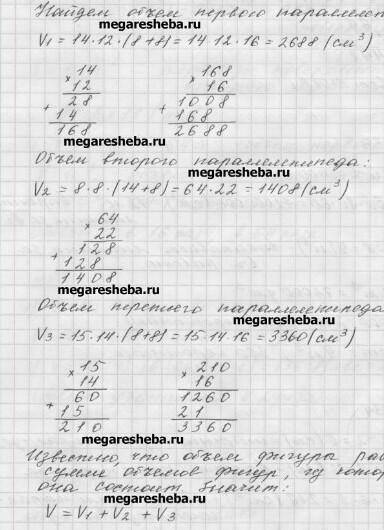 Найдем объем первого параллелеп
megaresheba.ru
V₁ = 14·12·(8+8) = 14·12·16 = 2688 (см³)
× 14 × 168
12 16
28 1008
+ 14 + 168
168 2688
megaresheba.ru megaresheba.ru
Объем второго параллелепипеда:
megaresheba.ru
V₂ = 8·8·(14+8) = 64·22 = 1408 (см³)
× 64
22
128
+ 128
1408
megaresheba.ru
Объем третьего параллелепипеда
megaresheba.ru
V₃ = 15·14·(8+8) = 15·14·16 = 3360 (см³)
× 15 × 210
14 16
60 1260
+ 15 21
210 3360
megaresheba.ru
Известно, что объем фигуры рав
сумме объемов фигур, из котор
она состоит, значит:
megaresheba.ru
V = V₁ + V₂ + V₃